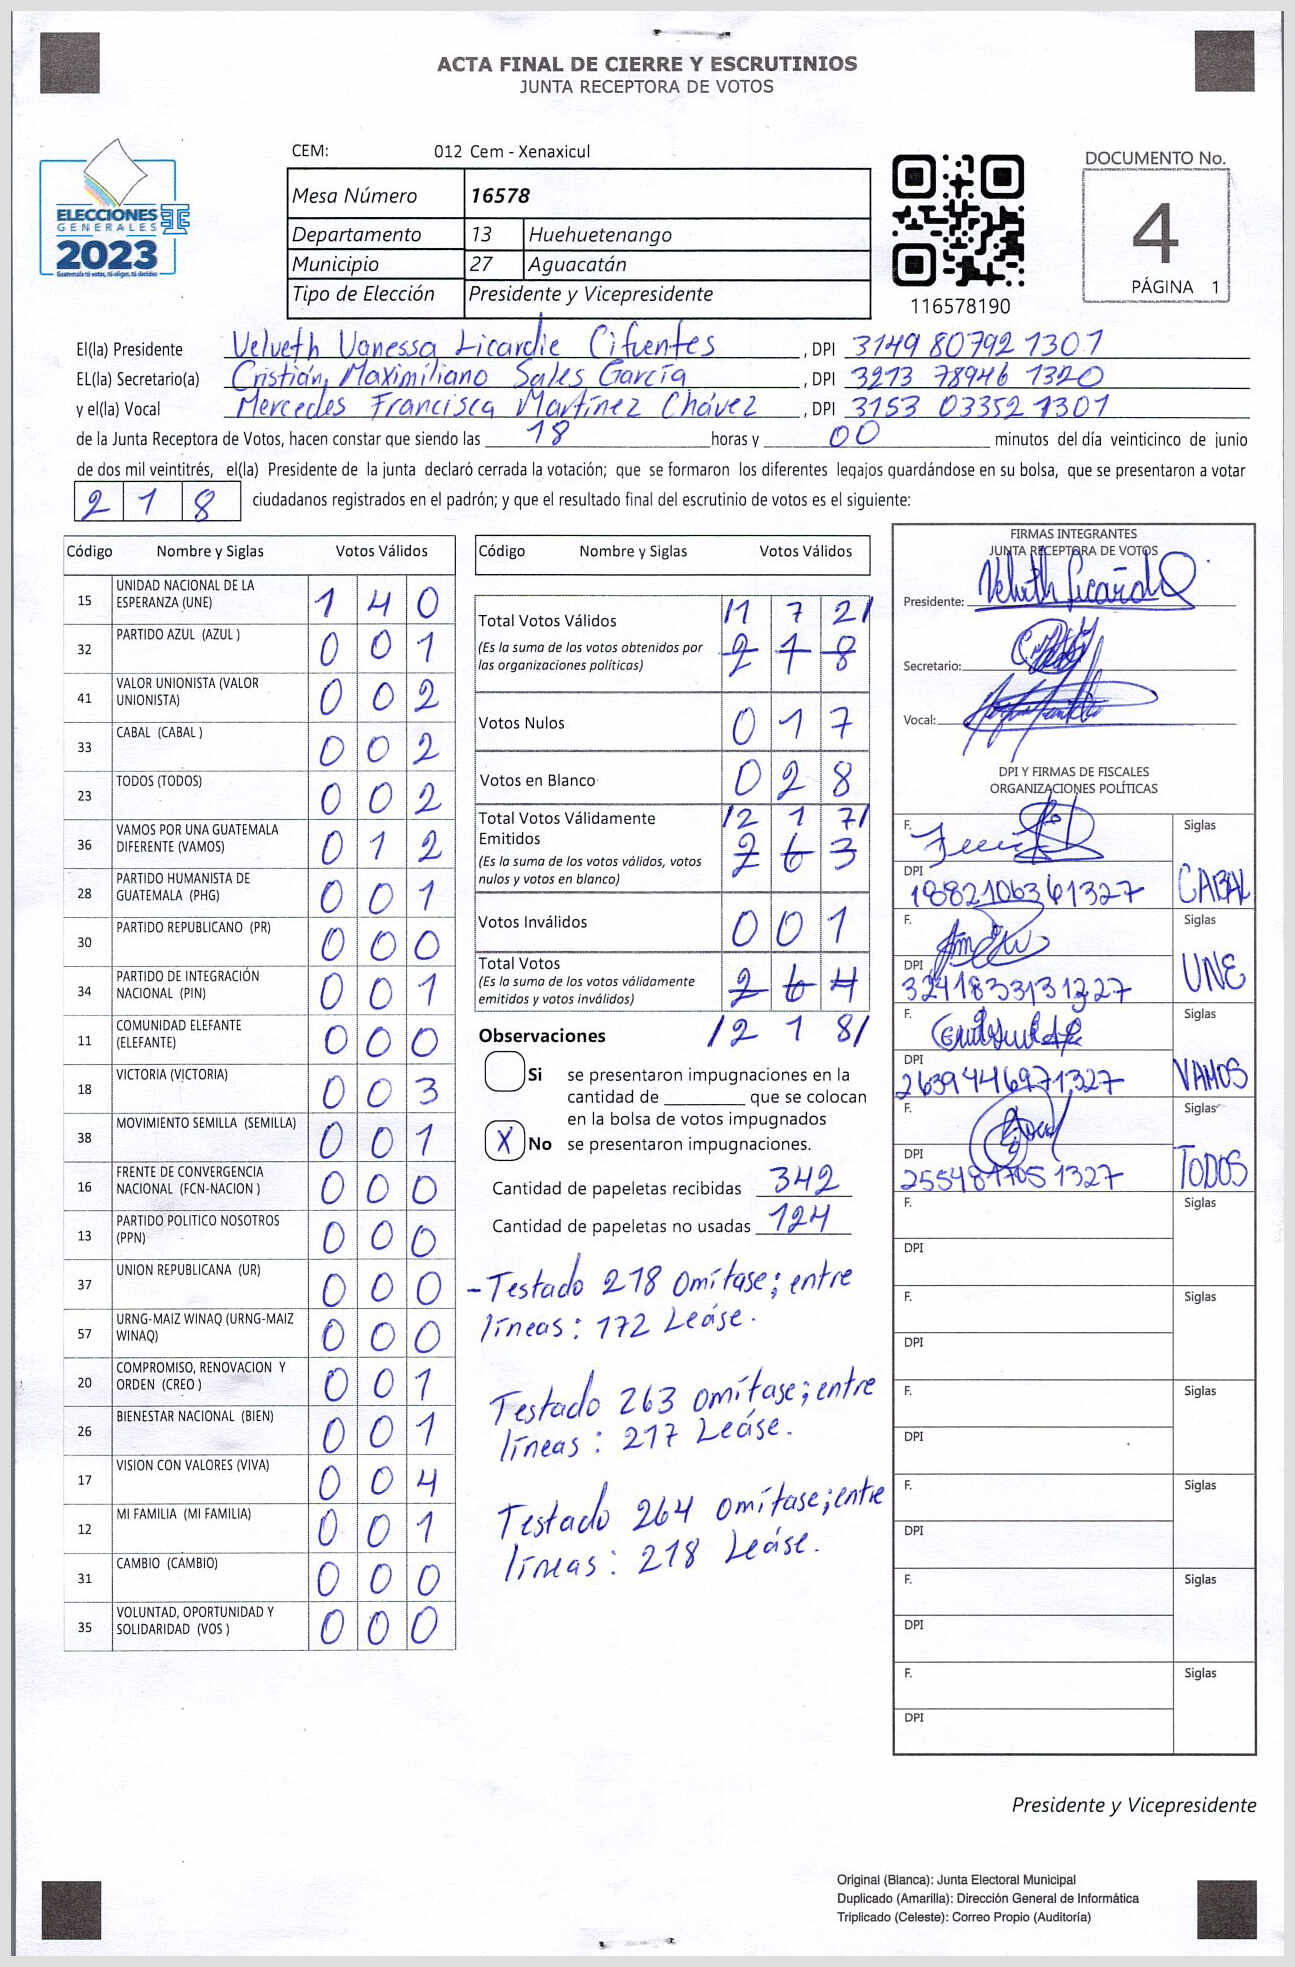 ACTA FINAL DE CIERRE Y ESCRUTINIOS
JUNTA RECEPTORA DE VOTOS
ELECCIONES
GENERALES
2023
Guatemala tú votas, tú eliges, tú decides
CEM: 012 Cem - Xenaxicul
Mesa Número 16578
Departamento 13 Huehuetenango
Municipio 27 Aguacatán
Tipo de Elección Presidente y Vicepresidente
116578190
DOCUMENTO No.
4
PÁGINA 1
El(la) Presidente Velveth Vanessa Licardie Cifuentes , DPI 3149 80792 1301
EL(la) Secretario(a) Cristián Maximiliano Sales García , DPI 3213 78946 1320
y el(la) Vocal Mercedes Francisca Martínez Chávez , DPI 3153 03352 1301
de la Junta Receptora de Votos, hacen constar que siendo las 18 horas y 00 minutos del día veinticinco de junio
de dos mil veintitrés, el(la) Presidente de la junta declaró cerrada la votación; que se formaron los diferentes legajos quardándose en su bolsa, que se presentaron a votar
2 1 8 ciudadanos registrados en el padrón; y que el resultado final del escrutinio de votos es el siguiente:
Código Nombre y Siglas Votos Válidos
15 UNIDAD NACIONAL DE LA ESPERANZA (UNE) 1 4 0
32 PARTIDO AZUL (AZUL ) 0 0 1
41 VALOR UNIONISTA (VALOR UNIONISTA) 0 0 2
33 CABAL (CABAL ) 0 0 2
23 TODOS (TODOS) 0 0 2
36 VAMOS POR UNA GUATEMALA DIFERENTE (VAMOS) 0 1 2
28 PARTIDO HUMANISTA DE GUATEMALA (PHG) 0 0 1
30 PARTIDO REPUBLICANO (PR) 0 0 0
34 PARTIDO DE INTEGRACIÓN NACIONAL (PIN) 0 0 1
11 COMUNIDAD ELEFANTE (ELEFANTE) 0 0 0
18 VICTORIA (VICTORIA) 0 0 3
38 MOVIMIENTO SEMILLA (SEMILLA) 0 0 1
16 FRENTE DE CONVERGENCIA NACIONAL (FCN-NACION ) 0 0 0
13 PARTIDO POLITICO NOSOTROS (PPN) 0 0 0
37 UNION REPUBLICANA (UR) 0 0 0
57 URNG-MAIZ WINAQ (URNG-MAIZ WINAQ) 0 0 0
20 COMPROMISO, RENOVACION Y ORDEN (CREO ) 0 0 1
26 BIENESTAR NACIONAL (BIEN) 0 0 1
17 VISION CON VALORES (VIVA) 0 0 4
12 MI FAMILIA (MI FAMILIA) 0 0 1
31 CAMBIO (CAMBIO) 0 0 0
35 VOLUNTAD, OPORTUNIDAD Y SOLIDARIDAD (VOS ) 0 0 0
Código Nombre y Siglas Votos Válidos
Total Votos Válidos /1 7 2/
(Es la suma de los votos obtenidos por las organizaciones políticas) 2 1 8
Votos Nulos 0 1 7
Votos en Blanco 0 2 8
Total Votos Válidamente Emitidos /2 1 7/
(Es la suma de los votos válidos, votos nulos y votos en blanco) 2 6 3
Votos Inválidos 0 0 1
Total Votos
(Es la suma de los votos válidamente emitidos y votos inválidos) 2 6 4
/2 1 8/
Observaciones
Si se presentaron impugnaciones en la
cantidad de ________ que se colocan
en la bolsa de votos impugnados
X No se presentaron impugnaciones.
Cantidad de papeletas recibidas 342
Cantidad de papeletas no usadas 124
-Testado 218 omítase; entre
líneas: 172 Leáse.
Testado 263 omítase; entre
líneas: 217 Leáse.
Testado 264 omítase; entre
líneas: 218 Leáse.
FIRMAS INTEGRANTES
JUNTA RECEPTORA DE VOTOS
Presidente:
Secretario:
Vocal:
DPI Y FIRMAS DE FISCALES
ORGANIZACIONES POLÍTICAS
F. Siglas
DPI 1882106361327 CABAL
F. Siglas
DPI 3241833131327 UNE
F. Siglas
DPI 2639446971327 VAMOS
F. Siglas
DPI 2554817051327 TODOS
F. Siglas
DPI
F. Siglas
DPI
F. Siglas
DPI
F. Siglas
DPI
F. Siglas
DPI
F. Siglas
DPI
Presidente y Vicepresidente
Original (Blanca): Junta Electoral Municipal
Duplicado (Amarilla): Dirección General de Informática
Triplicado (Celeste): Correo Propio (Auditoría)